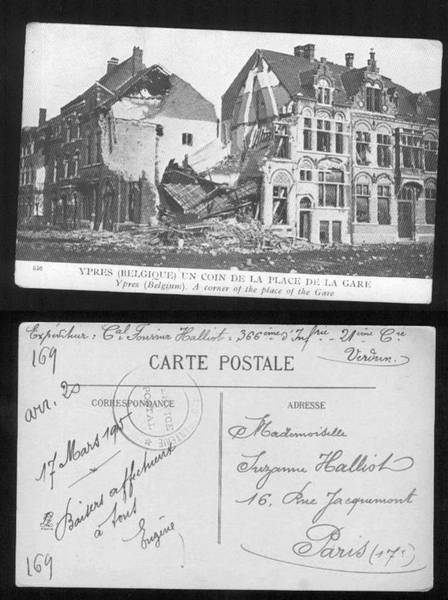 636
YPRES (BELGIQUE) UN COIN DE LA PLACE DE LA GARE
Ypres (Belgium). A corner of the place of the Gare
Expéditeur : Cal Fournier Halliot = 366ème d'Infrie - 21ème Cie
Verdun.
169
CARTE POSTALE
arr. 20
CORRESPONDANCE
ADRESSE
SERVICE
POSTAL
17 Mars 1915
Baisers affectueux
à tous
Eugène
169
Mademoiselle
Suzanne Halliot
16, Rue Jacquemont
Paris (17e)